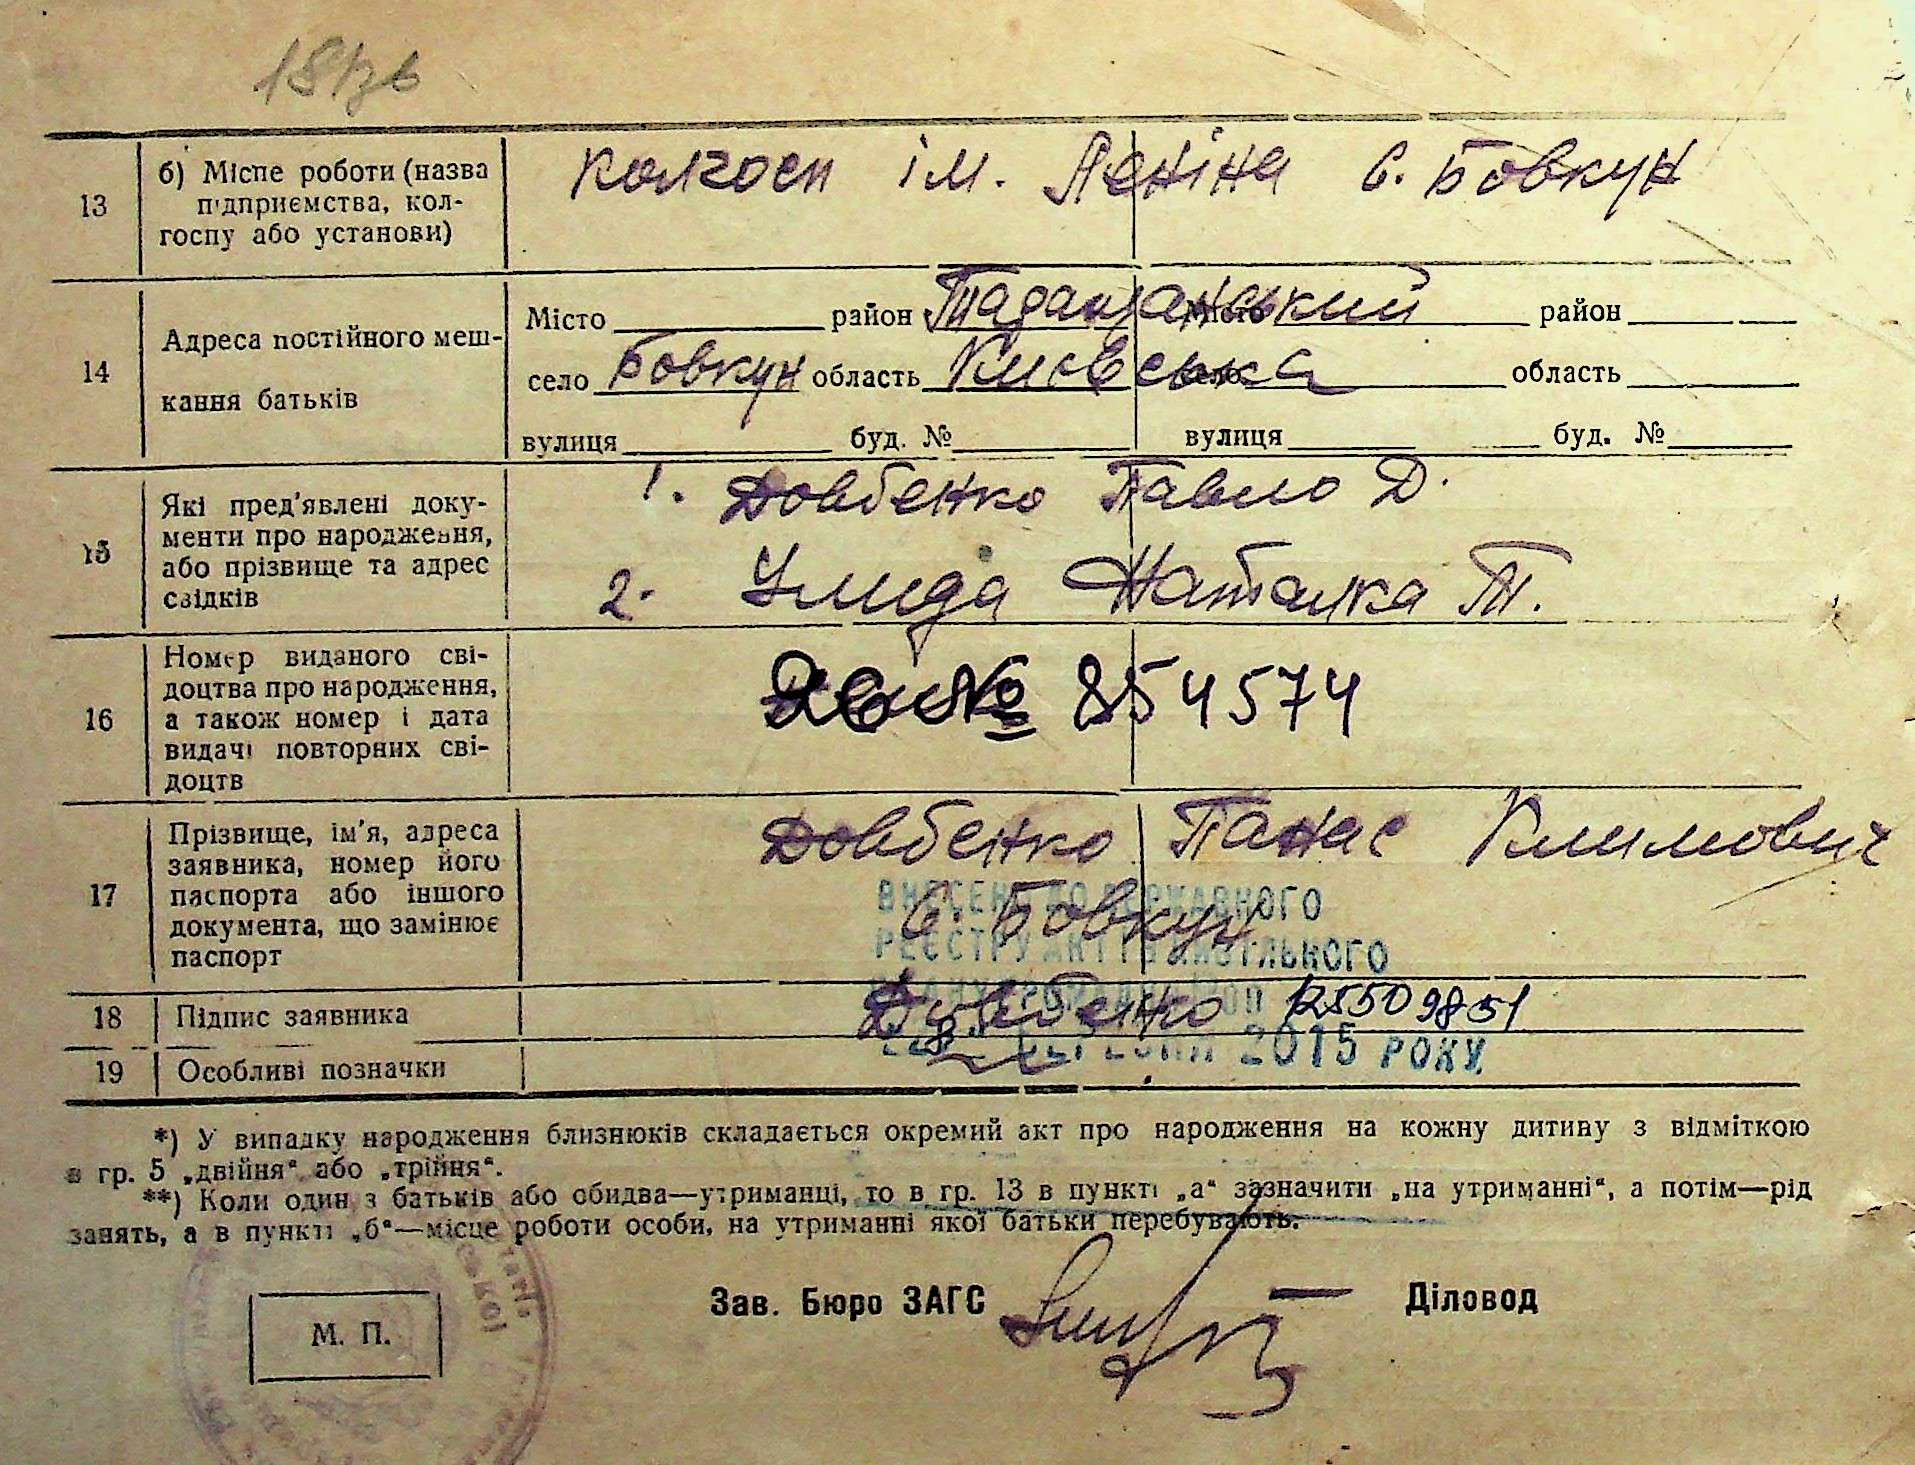 13 б) Місце роботи (назва підприємства, кол-
госпу або установи)
колгосп ім. Леніна с. Бовкун
14 Адреса постійного меш-
кання батьків
Місто район Таращанський Місто район
село Бовкун область Києвська село область
вулиця буд. № вулиця буд. №
15 Які пред'явлені доку-
менти про народження,
або прізвище та адрес
свідків
1. Довбенко Павло Д.
2. Улида Наталка Т.
16 Номер виданого сві-
доцтва про народження,
а також номер і дата
видачі повторних сві-
доцтв
№ 854574
17 Прізвище, ім'я, адреса
заявника, номер його
паспорта або іншого
документа, що замінює
паспорт
Довбенко Панас Климович
с. Бовкун
ВНЕСЕНО ДО ДЕРЖАВНОГО
РЕЄСТРУ АКТІВ ЦИВІЛЬНОГО
18 Підпис заявника
Довбенко 125509851
2015 РОКУ
19 Особливі позначки
*) У випадку народження близнюків складається окремий акт про народження на кожну дитину з відміткою
в гр. 5 „двійня“ або „трійня“.
**) Коли один з батьків або обидва—утриманці, то в гр. 13 в пункті „а“ зазначити „на утриманні“, а потім—рід
занять, а в пункті „б“—місце роботи особи, на утриманні якої батьки перебувають.
М. П.
Зав. Бюро ЗАГС
Діловод